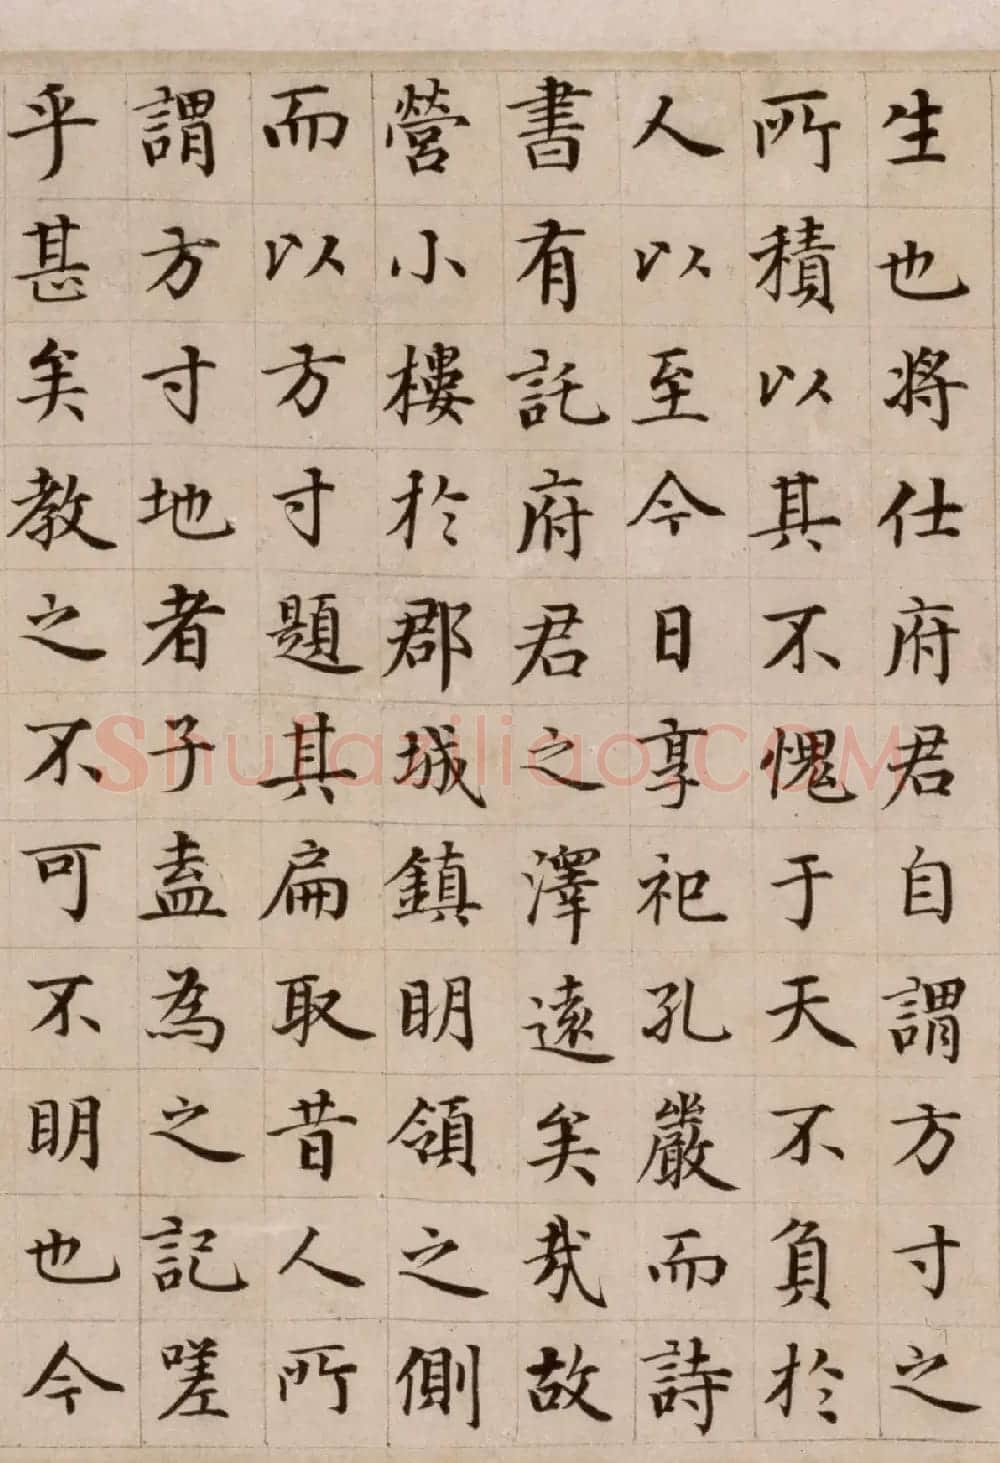 生也將仕府君自謂方寸之
所積以其不愧于天不負於
人以至今日享祀孔嚴而詩
書有託府君之澤遠矣哉故
營小樓於郡城鎮明領之側
而以方寸題其扁取昔人所
謂方寸地者子盍為之記嗟
乎甚矣教之不可不明也今
shufaziliao.COM